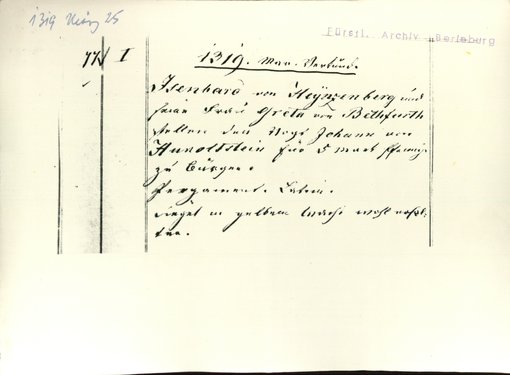 1319 März 25
Fürstl. Archiv Berleburg
77 I 1319. Mar. Verkünd.
Isenhard von Heÿnzenberg und
seine Frau Greta von Bethfurth
stellen den Vogt Johann von
Hunoltstein für 5 mark Pfennige
zu Bürgen.
Pergament. Latein.
Siegel in gelbem Wachs wohl erhal-
ten.